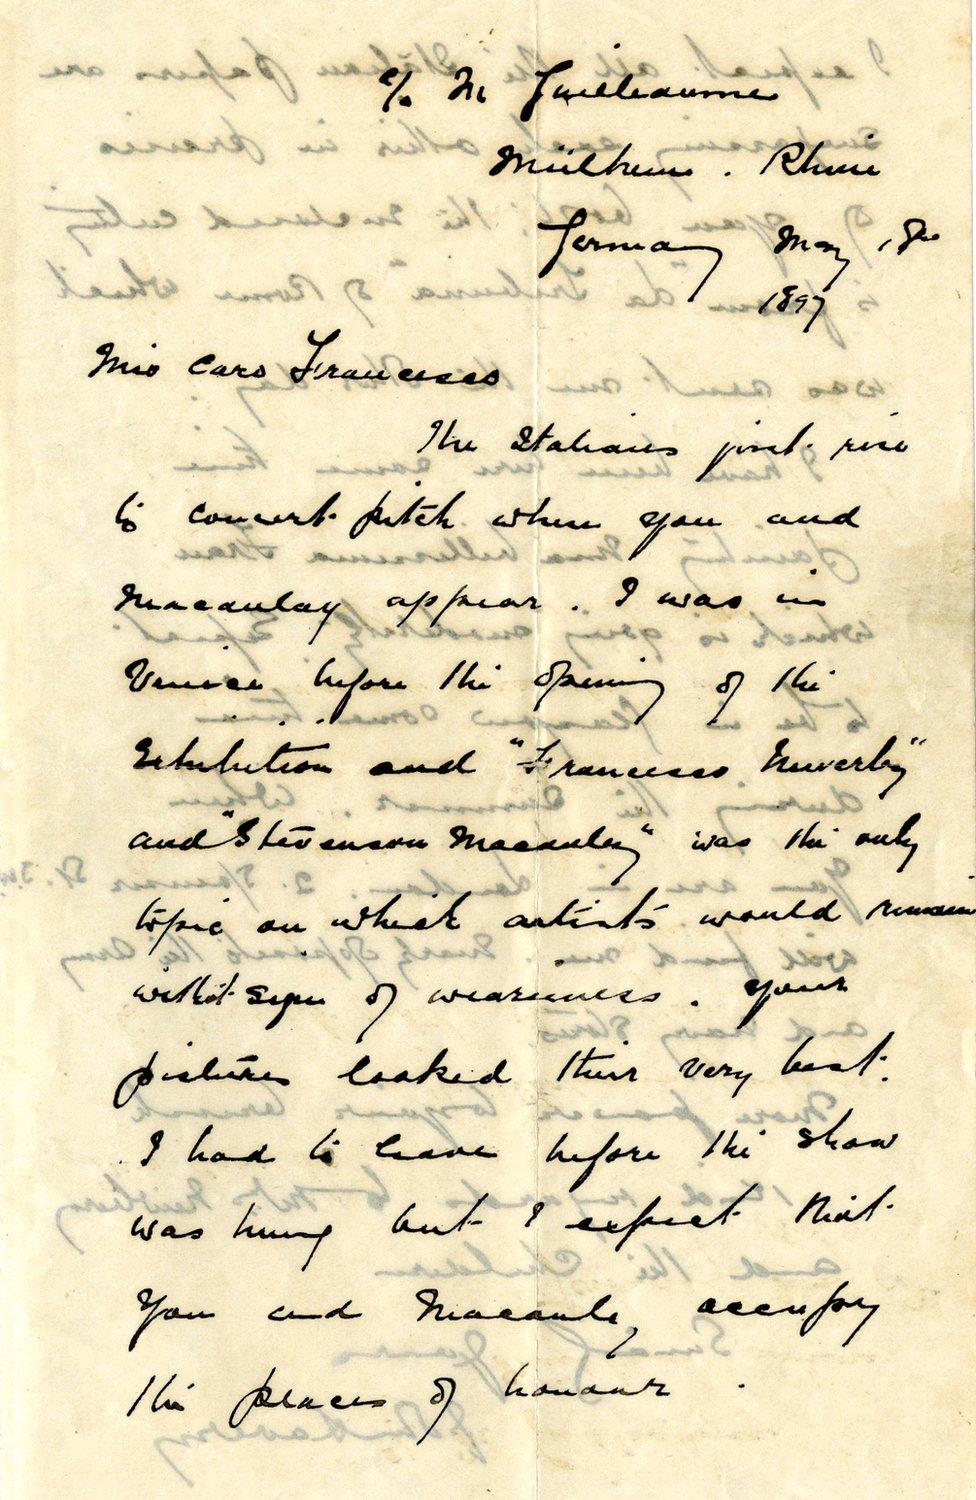 c/o M Guilleaume
Mülheim. Rhine
Germany May 18th
1897
Mio Caro Francesco
The Italians just rise
to concert pitch when you and
Macaulay appear. I was in
Venice before the opening of the
Exhibition and "Francesco Nuverby"
and "Stevenson Macaulay" was the only
topic on which artists would remain
without sign of weariness. Your
pictures looked their very best.
I had to leave before the show
was hung but I expect that
you and Macaulay occupy
the places of honour.